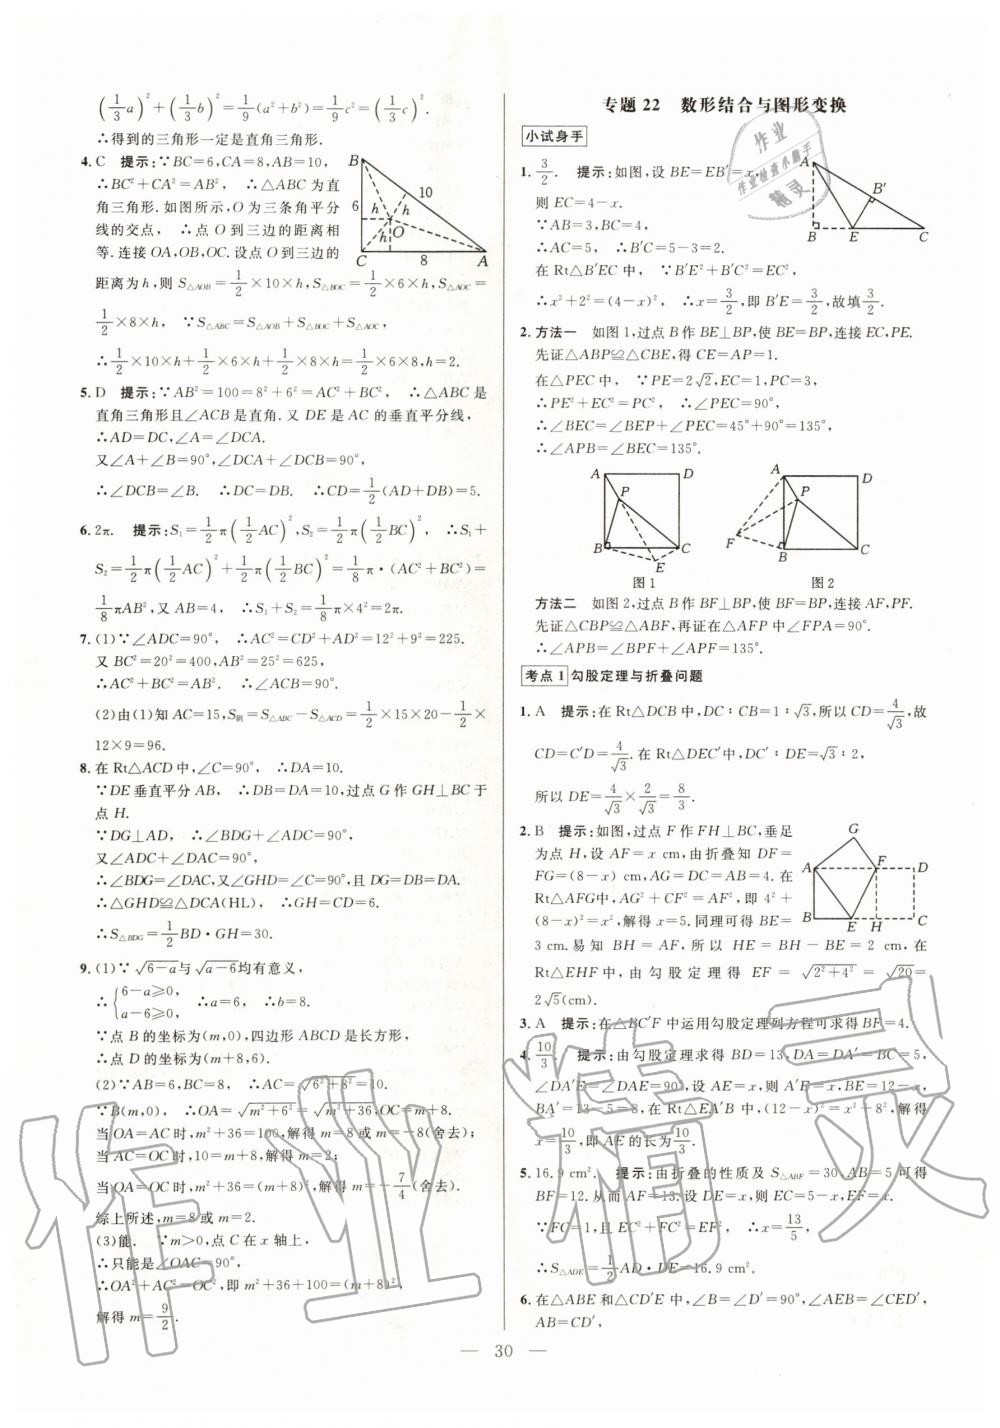 (1/3 a)²+(1/3 b)²=1/9(a²+b²)=1/9 c²=(1/3 c)².
∴得到的三角形一定是直角三角形.
4. C 提示:∵BC=6,CA=8,AB=10,
∴BC²+CA²=AB², ∴△ABC 为直
角三角形.如图所示,O 为三条角平分
线的交点, ∴点 O 到三边的距离相
等.连接 OA,OB,OC.设点 O 到三边的
距离为 h,则 S△AOB=1/2×10×h,S△BOC=1/2×6×h,S△AOC=
1/2×8×h, ∵S△ABC=S△AOB+S△BOC+S△AOC,
∴1/2×10×h+1/2×6×h+1/2×8×h=1/2×6×8,h=2.
B
6
10
h
h
h
O
C
8
A
5. D 提示:∵AB²=100=8²+6²=AC²+BC², ∴△ABC 是
直角三角形且∠ACB 是直角.又 DE 是 AC 的垂直平分线,
∴AD=DC,∠A=∠DCA.
又∠A+∠B=90°,∠DCB+∠DCA=90°,
∴∠DCB=∠B. ∴DC=DB. ∴CD=1/2(AD+DB)=5.
6. 2π. 提示:S₁=1/2π(1/2 AC)²,S₂=1/2π(1/2 BC)², ∴S₁+
S₂=1/2π(1/2 AC)²+1/2π(1/2 BC)²=1/8π·(AC²+BC²)=
1/8πAB²,又 AB=4, ∴S₁+S₂=1/8π×4²=2π.
7. (1)∵∠ADC=90°, ∴AC²=CD²+AD²=12²+9²=225.
又 BC²=20²=400,AB²=25²=625,
∴AC²+BC²=AB². ∴∠ACB=90°.
(2)由(1)知 AC=15,S阴=S△ABC-S△ACD=1/2×15×20-1/2×
12×9=96.
8. 在 Rt△ACD 中,∠C=90°, ∴DA=10.
∵DE 垂直平分 AB, ∴DB=DA=10,过点 G 作 GH⊥BC 于
点 H.
∵DG⊥AD, ∴∠BDG+∠ADC=90°,
又∠ADC+∠DAC=90°,
∴∠BDG=∠DAC,又∠GHD=∠C=90°,且 DG=DB=DA.
∴△GHD≌△DCA(HL), ∴GH=CD=6.
∴S△BDG=1/2BD·GH=30.
9. (1)∵√(6-a)与√(a-6)均有意义,
∴{6-a≥0, a-6≥0, ∴a=6, ∴b=8.
∵点 B 的坐标为(m,0),四边形 ABCD 是长方形,
∴点 D 的坐标为(m+8,6).
(2)∵AB=6,BC=8, ∴AC=√(6²+8²)=10.
∵B(m,0), ∴OA=√(m²+6²)=√(m²+36),OC=m+8.
当 OA=AC 时,m²+36=100,解得 m=8或 m=-8(舍去);
当 AC=OC 时,10=m+8,解得 m=2;
当 OA=OC 时,√(m²+36)=m+8,解得 m=-7/4(舍去).
综上所述,m=8或 m=2.
(3)能. ∵m>0,点 C 在 x 轴上,
∴只能是∠OAC=90°,
∴OA²+AC²=OC²,即 m²+36+100=(m+8)²,
解得 m=9/2.
专题 22 数形结合与图形变换
小试身手
1. 3/2. 提示:如图,设 BE=EB′=x,
则 EC=4-x.
∵AB=3,BC=4,
∴AC=5, ∴B′C=5-3=2.
在 Rt△B′EC 中, ∵B′E²+B′C²=EC²,
∴x²+2²=(4-x)², ∴x=3/2,即 B′E=3/2,故填3/2.
A
B′
B
E
C
2. 方法一 如图 1,过点 B 作 BE⊥BP,使 BE=BP,连接 EC,PE.
先证△ABP≌△CBE,得 CE=AP=1.
在△PEC 中, ∵PE=2√2,EC=1,PC=3,
∴PE²+EC²=PC², ∴∠PEC=90°,
∴∠BEC=∠BEP+∠PEC=45°+90°=135°,
∴∠APB=∠BEC=135°.
A
D
P
B
C
E
图 1
A
D
P
F
B
C
图 2
方法二 如图 2,过点 B 作 BF⊥BP,使 BF=BP,连接 AF,PF.
先证△CBP≌△ABF,再证在△AFP 中∠FPA=90°.
∴∠APB=∠BPF+∠APF=135°.
考点 1 勾股定理与折叠问题
1. A 提示:在 Rt△DCB 中,DC∶CB=1∶√3,所以 CD=4/√3,故
CD=C′D=4/√3.在 Rt△DEC′中,DC′∶DE=√3∶2,
所以 DE=4/√3×2/√3=8/3.
2. B 提示:如图,过点 F 作 FH⊥BC,垂足
为点 H,设 AF=x cm,由折叠知 DF=
FG=(8-x) cm,AG=DC=AB=4.在
Rt△AFG中,AG²+GF²=AF²,即 4²+
(8-x)²=x²,解得 x=5.同理可得 BE=
3 cm.易知 BH=AF,所以 HE=BH-BE=2 cm,在
Rt△EHF 中,由勾股定理得 EF=√(2²+4²)=√20=
2√5(cm).
G
A
F
D
B
E
H
C
3. A 提示:在△BC′F 中运用勾股定理列方程可求得 BF=4.
4. 10/3. 提示:由勾股定理求得 BD=13,DA=DA′=BC=5,
∠DA′E=∠DAE=90°,设 AE=x,则 A′E=x,BE=12-x,
BA′=13-5=8,在 Rt△EA′B 中,(12-x)²=x²+8²,解得
x=10/3,即 AE 的长为10/3.
5. 16.9 cm². 提示:由折叠的性质及 S△ABF=30,AB=5 可得
BF=12.从而 AF=13.设 DE=x,则 EC=5-x,EF=x.
∵FC=1,且 EC²+FC²=EF², ∴x=13/5,
∴S△ADE=1/2AD·DE=16.9 cm².
6. 在△ABE 和△CD′E 中,∠B=∠D′=90°,∠AEB=∠CED′,
AB=CD′,
— 30 —
作业
作业检查小助手
精灵
作业精灵